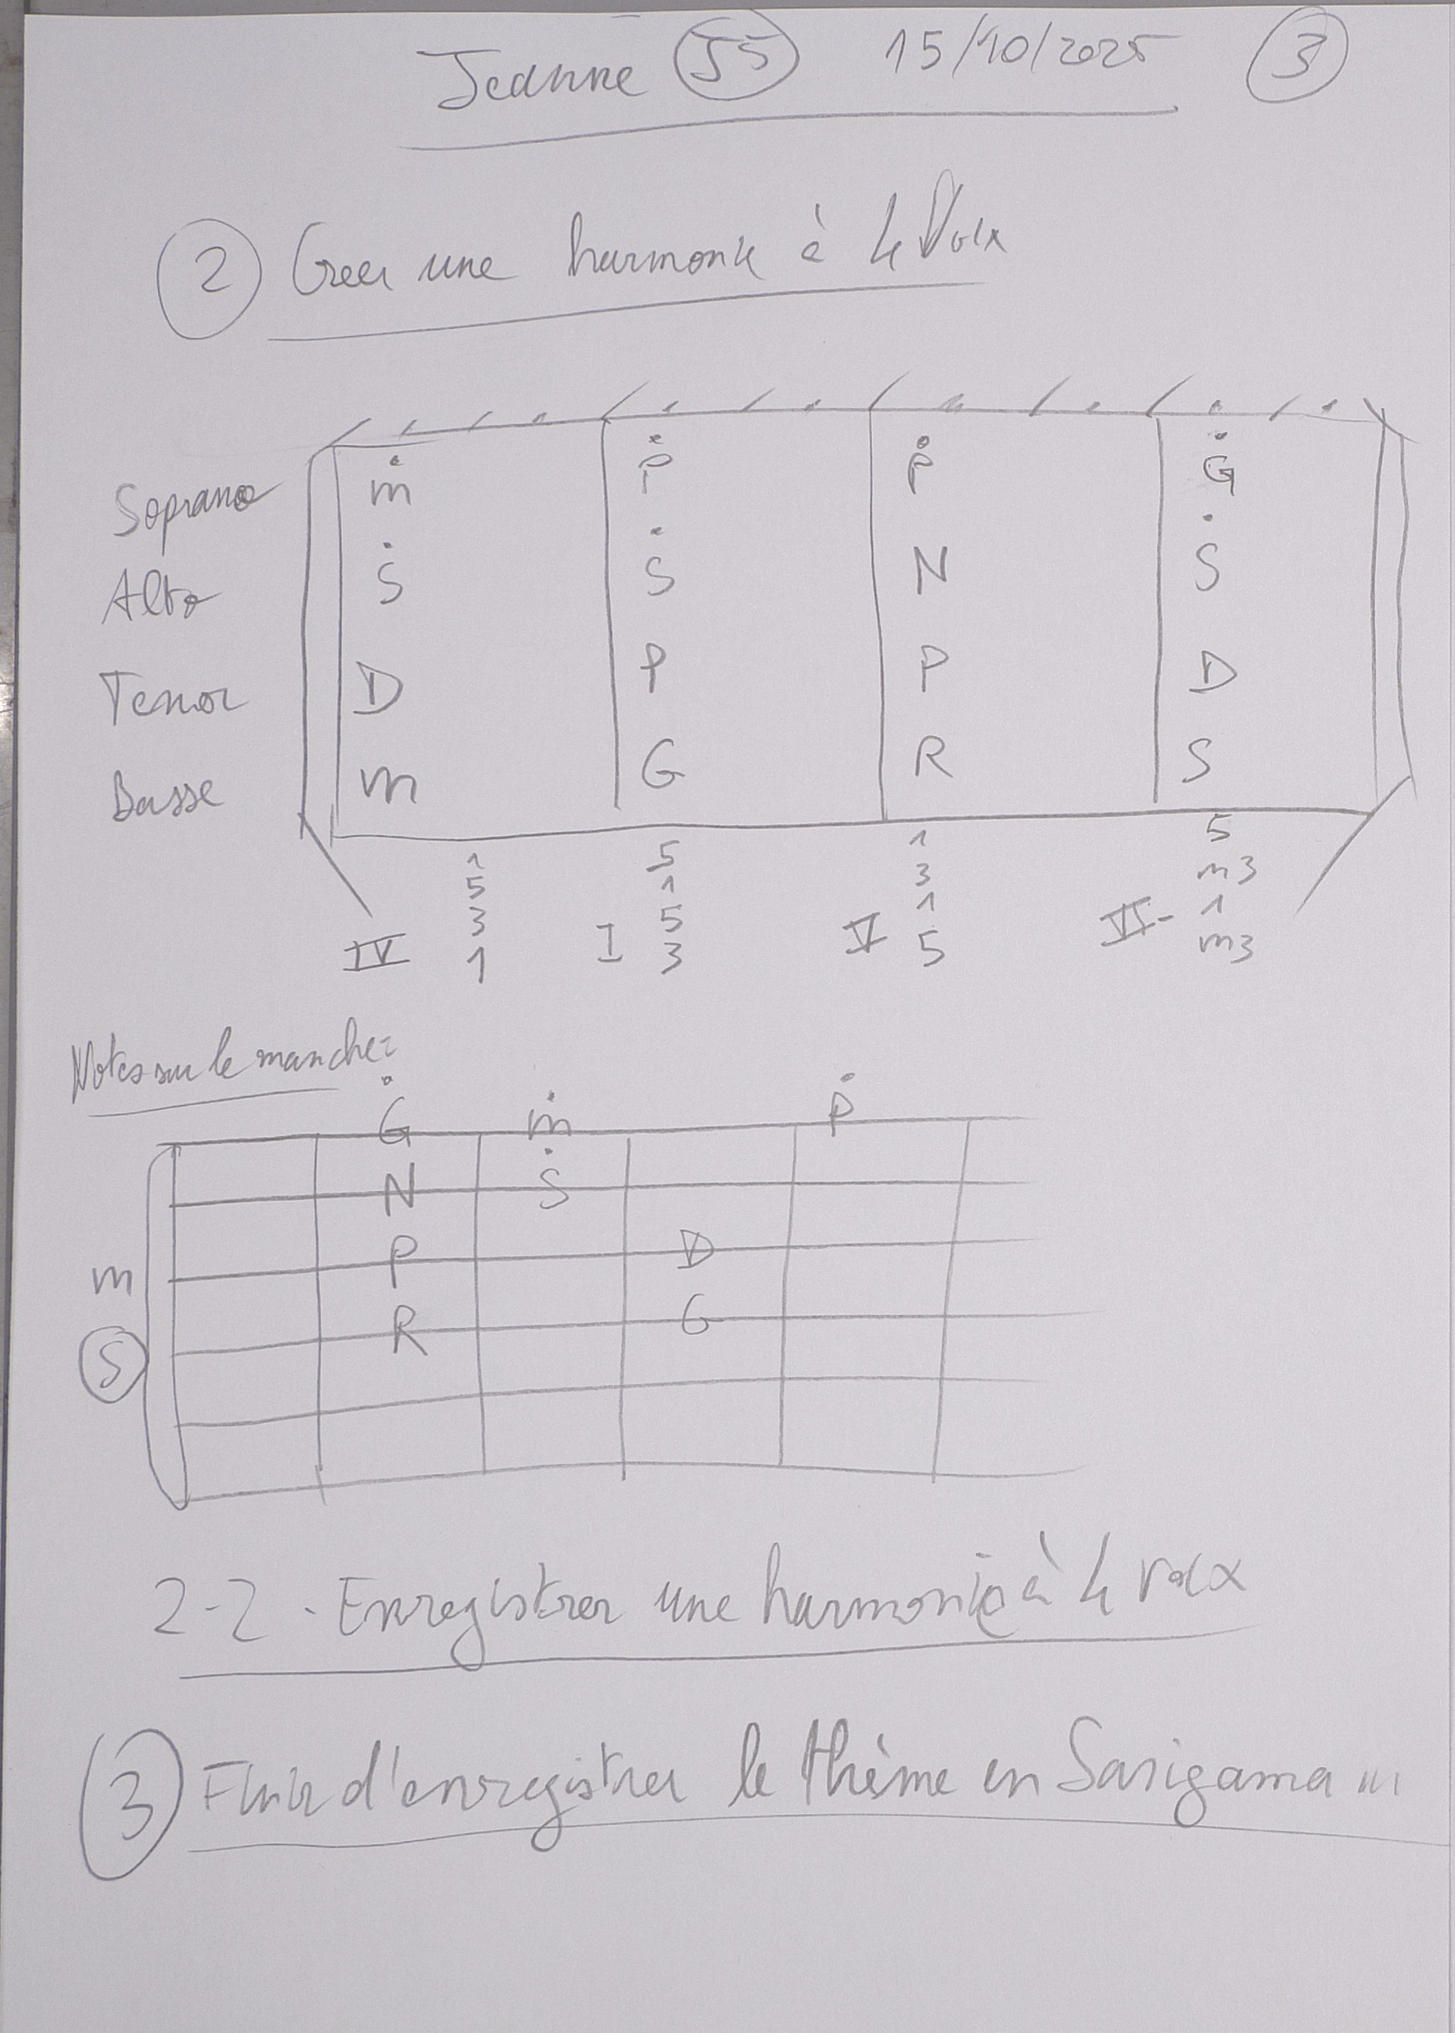 Jeanne J5 15/10/2025 3
2 Creer une harmonie à la Voix
Soprano ṁ Ṗ Ṗ Ġ
Alto Ṡ Ṡ N Ṡ
Tenor D P P D
Basse m G R S
1 5 1 5
5 1 3 m3
3 5 1 1
IV 1 I 3 V 5 VI- m3
Notes sur le manche:
Ġ ṁ Ṗ
N Ṡ
m P D
S R G
2-2. Enregistrer une harmonie à la voix
3 Finir d'enregistrer le thème en Sarigama ...